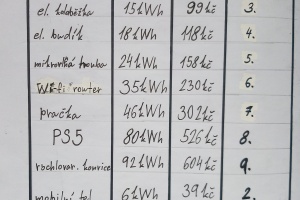 el. koloběžka 15kWh 99kč 3.
el. budík 18kWh 118kč 4.
mikrovlná trouba 24kWh 158kč 5.
Wifi router 35kWh 230kč 6.
pračka 46kWh 302kč 7.
PS5 80kWh 526kč 8.
rychlovar. konvice 92kWh 604kč 9.
mobilní tel. 6kWh 39kč 2.